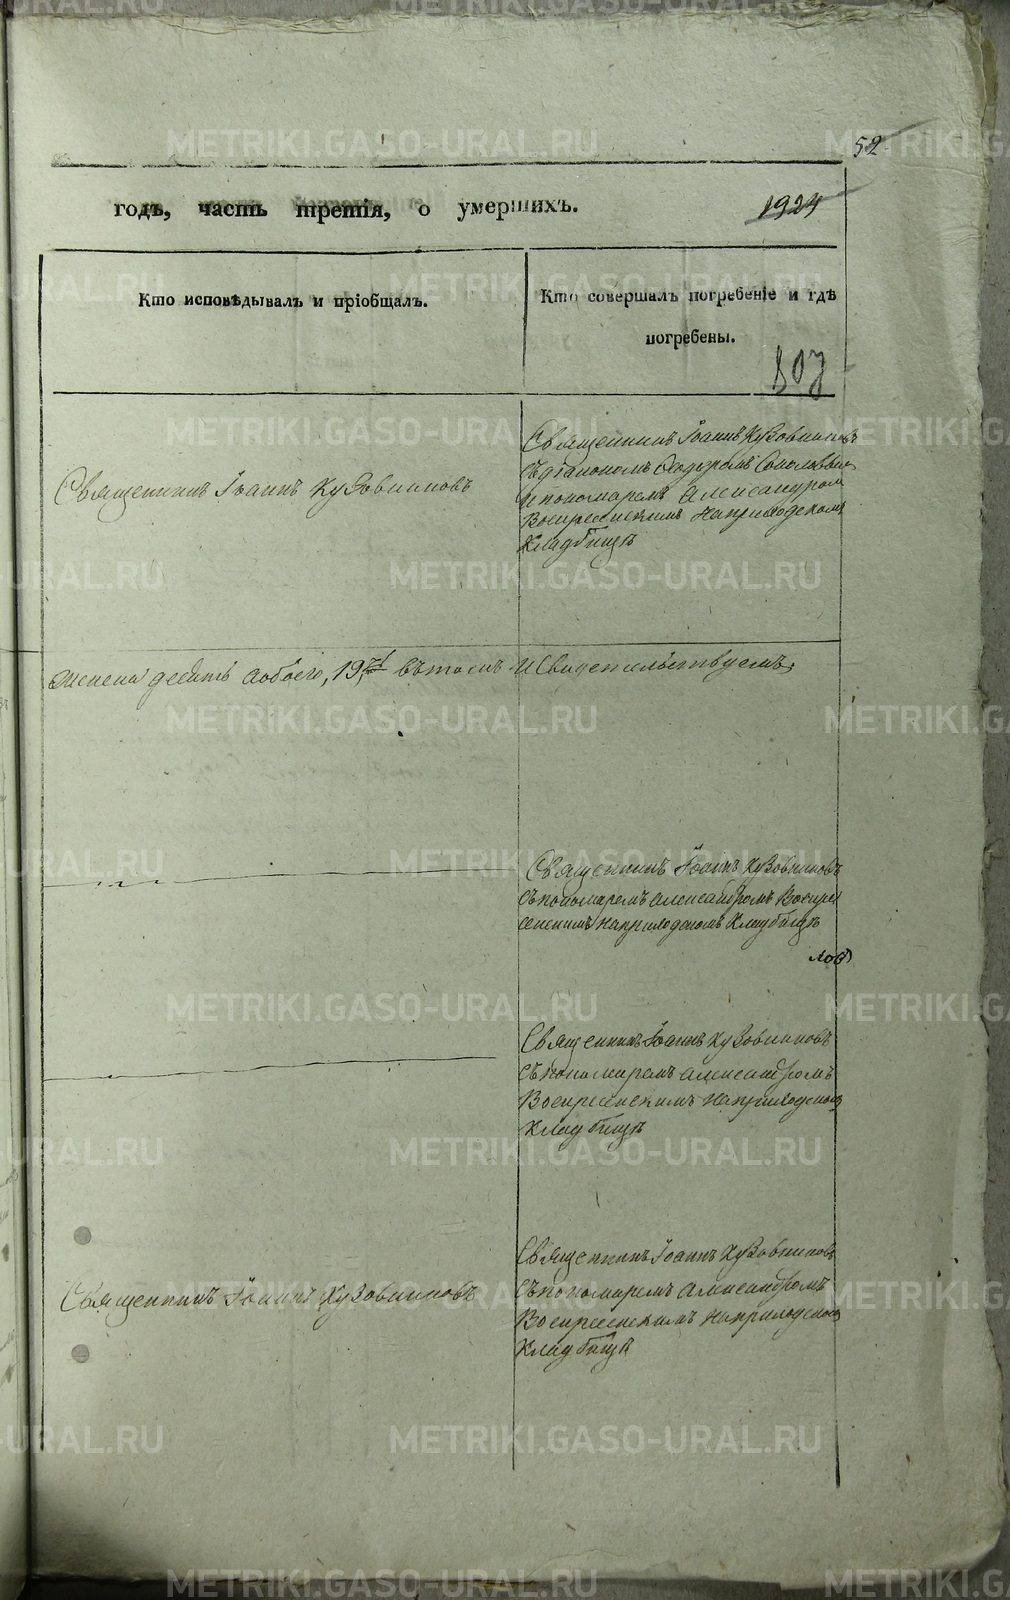 52
годъ, часть третія, о умершихъ.
1924
Кто исповѣдывалъ и пріобщалъ.
Кто совершалъ погребеніе и гдѣ
погребены.
807
Священникъ Іоаннъ Кузовниковъ
Священникъ Іоаннъ Кузовниковъ
съ діакономъ Ѳедоромъ Соколовымъ
и пономаремъ Александромъ
Воскресенскимъ на приходскомъ
кладбищѣ
женска десять а обоего, 19, въ томъ и свидетельствуемъ,
Священникъ Іоаннъ Кузовниковъ
съ пономаремъ Александромъ Воскре
сенскимъ на приходскомъ кладбищѣ
Священникъ Іоаннъ Кузовниковъ
съ пономаремъ Александромъ
Воскресенскимъ на приходскомъ
кладбищѣ
Священникъ Іоаннъ Кузовниковъ
Священникъ Іоаннъ Кузовниковъ
съ пономаремъ Александромъ
Воскресенскимъ на приходскомъ
кладбищѣ
METRIKI.GASO-URAL.RU